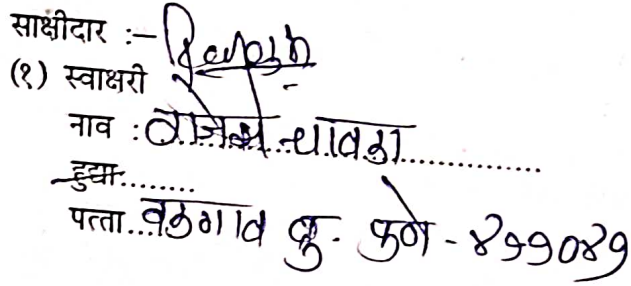 साक्षीदार :-
(१) स्वाक्षरी Rajesh
नाव : राजेश चावळा
हुद्दा
पत्ता वडगाव बु. पुणे - ४११०४१